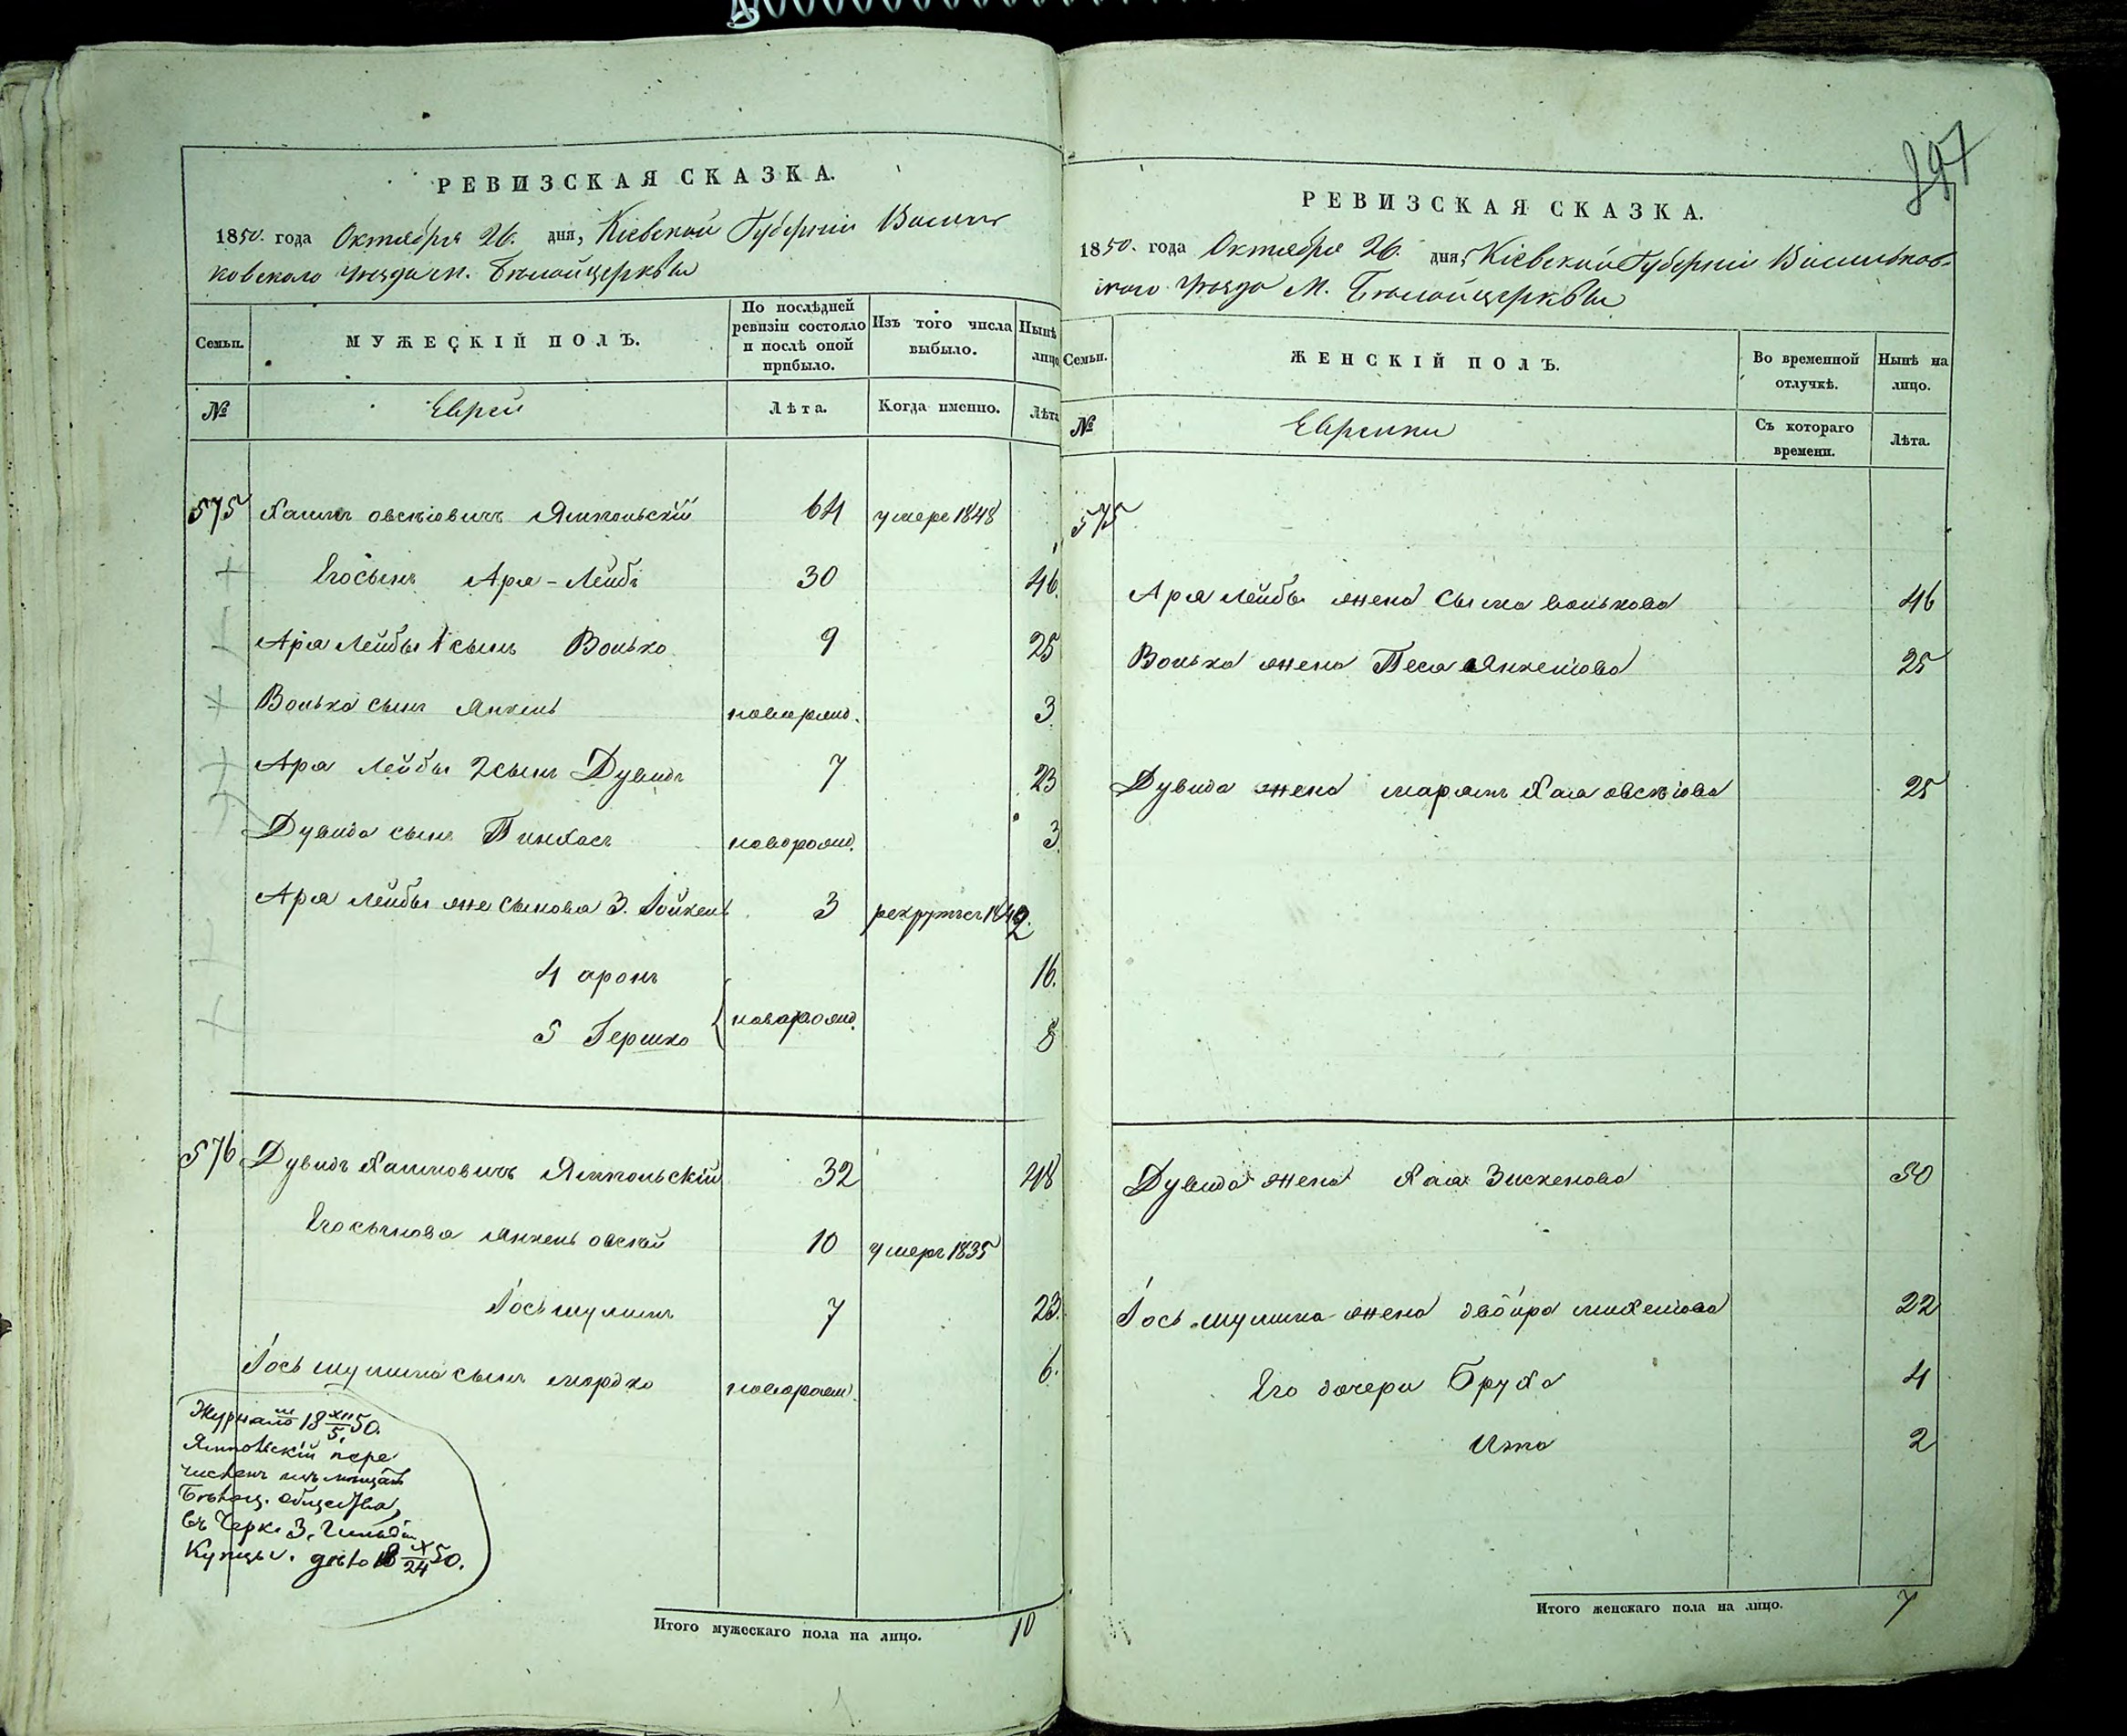 РЕВИЗСКАЯ СКАЗКА.
1850. года Октября 26. дня, Кіевской Губерніи Василь
ковскаго уѣзда м. Бѣлойцеркви
Семьи.
МУЖЕСКІЙ ПОЛЪ.
По послѣдней ревизіи состояло и послѣ оной прибыло.
Изъ того числа выбыло.
Нынѣ лицо
№
Евреи
Лѣта.
Когда именно.
Лѣта
575 Хаимъ овсѣіовичъ Ямпольскій 64 умеръ 1848
Его сынъ Аря-Лейбъ 30 46.
Аря Лейбы 1 сынъ Волько 9 25
Волька сынъ Янкель новорожд. 3
Аря Лейбы 2 сынъ Дувидъ 7 23
Дувида сынъ Пинхасъ новорожд. 3
Аря Лейбы же сыновья 3. Іойкель 3 рекрутъ 1842.
4 аронъ 16.
5 Гершко новорожд. 8
576 Дувидъ Хаимовичъ Ямпольскій 32 48
Его сыновья Янкель овсѣй 10 умеръ 1835
Іось шулимъ 7 23.
Іось шулима сынъ мордко новорожд. 6.
Журналъ 18 XII/5 50.
Ямпольскій пере
численъ изъ мѣщанъ
Бѣлоц. общества,
въ Черк. 3. гильдіи
Купцы. дѣло 18 X/24 50.
Итого мужескаго пола на лицо. 10
897
РЕВИЗСКАЯ СКАЗКА.
1850. года Октября 26. дня, Кіевской Губерніи Васильков-
скаго уѣзда М. Бѣлойцеркви
Семьи.
ЖЕНСКІЙ ПОЛЪ.
Во временной отлучкѣ.
Нынѣ на лицо.
№
Еврейки
Съ котораго времени.
Лѣта.
575
Аря Лейбы жена Сыма волькова 46
Волька жена Песя Янкеліова 25
Дувида жена марьямъ Хая овсѣіова 25
Дувида жена Хая Зискенова 50
Іось шулима жена двойра михеліова 22
Его дочери Бруха 4
Ита 2
Итого женскаго пола на лицо. 7